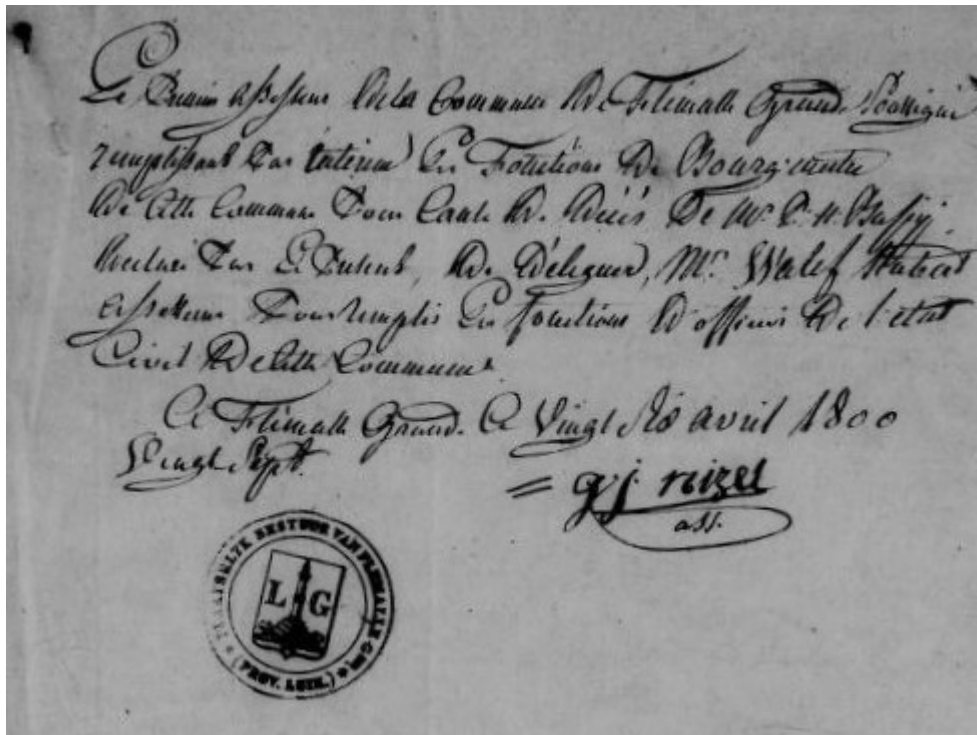 Le Premier assesseur de la Commune de Flémalle Grande Soussigné
remplissant Par interim les Fonctions de Bourgmestre
de Cette Commune Pour Cause de décès De Mr P. H.
declare Par le Present, de Déleguer, Mr Walef
assesseur Pour remplir les fonctions d'officier de l'état
Civil de Cette Commune
A Flémalle Grande Ce Vingt Six avril 1800
Vingt Sept.
= g j nizet
ass.
PLAATSELYK BESTUUR VAN FLEMALLE GDE
L G
(PROV. LUIK.)